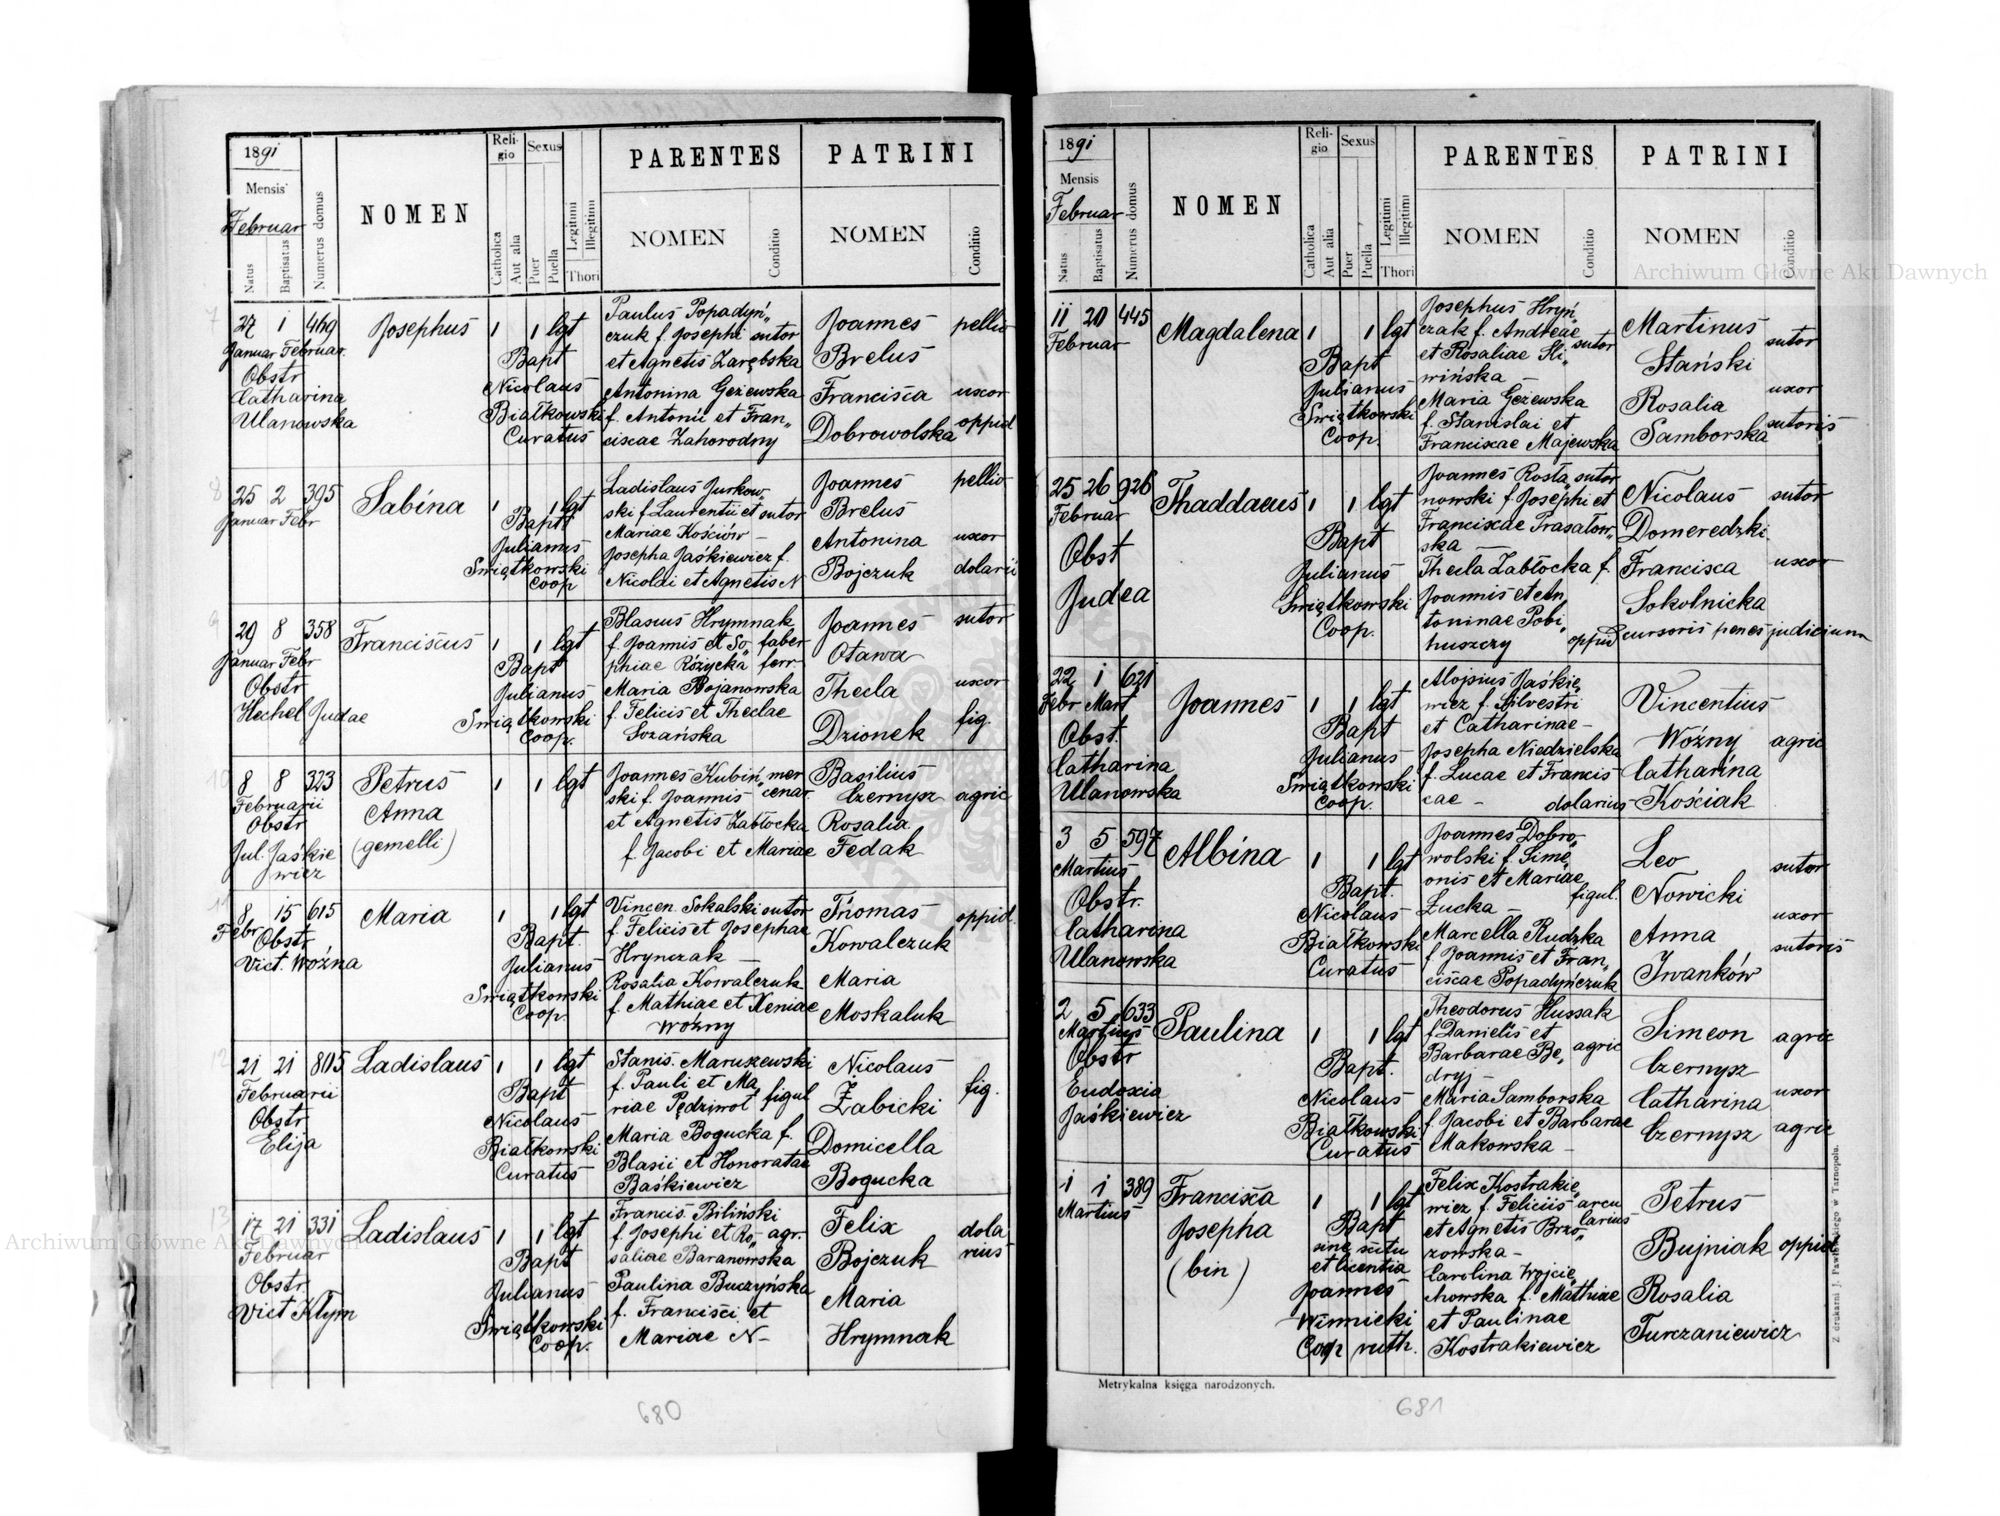 1891
Mensis
Februar
Natus
Baptisatus
Numerus domus
NOMEN
Religio
Catholica
Aut alia
Sexus
Puer
Puella
Legitimi
Illegitimi
Thori
PARENTES
NOMEN
Conditio
PATRINI
NOMEN
Conditio
7
27 1 469
Januar Februar.
Obstr
Catharina
Ulanowska
Josephus
1 1 lgt
Bapt
Nicolaus
Białkowski
Curatus
Paulus Popadyń„
czuk f. Josephi sutor
et Agnetis Zarębska
Antonina Geżewska
f. Antonii et Fran„
ciscae Zahorodny
Joannes pellio
Brelus
Francisca uxor
Dobrowolska oppid
8
25 2 395
Januar Febr
Sabina
1 1 lgt
Bapt
Julianus
Swiątkowski
Coop
Ladislaus Jurkow„
ski f. Laurentii et sutor
Mariae Kościów –
Josepha Jaśkiewicz f.
Nicolai et Agnetis N
Joannes pellio
Brelus
Antonina uxor
Bojczuk dolarii
9
29 8 358
Januar Febr
Obstr
Hechel Judae
Franciscus
1 1 lgt
Bapt
Julianus
Swiątkowski
Coop.
Blasius Hrymnak
f. Joannis et So„ faber
phiae Różycka ferr-
Maria Bojanowska
f. Felicis et Theclae
Sozańska
Joannes sutor
Otawa
Thecla uxor
Dzionek fig.
10
8 8 323
Februarii
Obstr
Jul. Jaśkie
wicz
Petrus
Anna
(gemelli)
1 1 lgt
Joannes Kubiń„ mer
ski f. Joannis cenar.
et Agnetis Zabłocka
f. Jacobi et Mariae
Basilius
Czernysz agric
Rosalia
Fedak
11
8 15 615
Febr
Obstr
Vict. Woźna
Maria
1 1 lgt
Bapt.
Julianus
Swiątkowski
Coop.
Vincen. Sokalski sutor
f. Felicis et Josephae
Hrynczak –
Rosalia Kowalczuk
f. Mathiae et Xeniae
Woźny
Thomas oppid.
Kowalczuk
Maria
Moskaluk
12
21 21 805
Februarii
Obstr
Elija
Ladislaus
1 1 lgt
Bapt
Nicolaus
Białkowski
Curatus
Stanis. Maruszewski
f. Pauli et Ma„
riae Pędziwot figul
Maria Bogucka f.
Blasii et Honoratae
Baśkiewicz
Nicolaus
Żabicki fig.
Domicella
Bogucka
13
17 21 331
Februar
Obstr.
Vict Kłym
Ladislaus
1 1 lgt
Bapt
Julianus
Swiątkowski
Coop.
Francis. Biliński
f. Josephi et Ro„ agr.
saliae Baranowska
Paulina Buczyńska
f. Francisci et
Mariae N–
Felix dola
Bojczuk rius
Maria
Hrymnak
680
1891
Mensis
Februar
Natus
Baptisatus
Numerus domus
NOMEN
Religio
Catholica
Aut alia
Sexus
Puer
Puella
Legitimi
Illegitimi
Thori
PARENTES
NOMEN
Conditio
PATRINI
NOMEN
Conditio
11 20 445
Februar
Magdalena
1 1 lgt
Bapt
Julianus
Swiątkowski
Coop.
Josephus Hryń„
czak f. Andreae
et Rosaliae Sli„ sutor
wińska –
Maria Geżewska
f. Stanislai et
Franciscae Majewska
Martinus
Stański sutor
Rosalia uxor
Samborska sutoris
25 26 926
Februar
Obst
Judea
Thaddaeus
1 1 lgt
Bapt
Julianus
Swiątkowski
Coop.
Joannes Rosta„ sutor
nowski f. Josephi et
Franciscae Prasałow„
ska –
Thecla Zabłocka f.
Joannis et An„
toninae Pobi„
huszczy oppid
Nicolaus sutor
Domeredzki
Francisca uxor
Sokolnicka
cursoris penes judicium
22 1 621
Febr Mart
Obst.
Catharina
Ulanowska
Joannes
1 1 lgt
Bapt
Julianus
Swiątkowski
Coop.
Alojsius Jaśkie„
wicz f. Silvestri
et Catharinae –
Josepha Niedzielska
f. Lucae et Francis
cae – dolarius
Vincentius
Woźny agric
Catharina
Kościak
3 5 597
Martius
Obstr.
Catharina
Ulanowska
Albina
1 1 lgt
Bapt.
Nicolaus
Białkowski
Curatus
Joannes Dobro„
wolski f. Sime„
onis et Mariae
Łucka – figul.
Marcella Rudzka
f. Joannis et Fran„
ciscae Popadyńczuk
Leo sutor
Nowicki
Anna uxor
Iwanków sutoris
2 5 633
Martius
Obstr
Eudoxia
Jaśkiewicz
Paulina
1 1 lgt
Bapt.
Nicolaus
Białkowski
Curatus
Theodorus Hussak
f. Danielis et
Barbarae Be„ agric
dryj –
Maria Samborska
f. Jacobi et Barbarae
Makowska –
Simeon agric
Czernysz
Catharina uxor
Czernysz agric
1 1 389
Martius
Francisca
Josepha
(bin)
1 1 lgt
Bapt
sine scitu
et licentia
Joannes
Winnicki
Coop ruth.
Felix Kostrakie„
wicz f. Feliciis arcu
et Agnetis Brzo„ larius
zowska –
Carolina Wojcie„
chowska f. Mathiae
et Paulinae
Kostrakiewicz
Petrus
Bujniak oppid
Rosalia
Turczaniewicz
Metrykalna księga narodzonych.
Z drukarni J. Pawlowskiego w Tarnopolu.
681
Archiwum Główne Akt Dawnych
Archiwum Główne Akt Dawnych